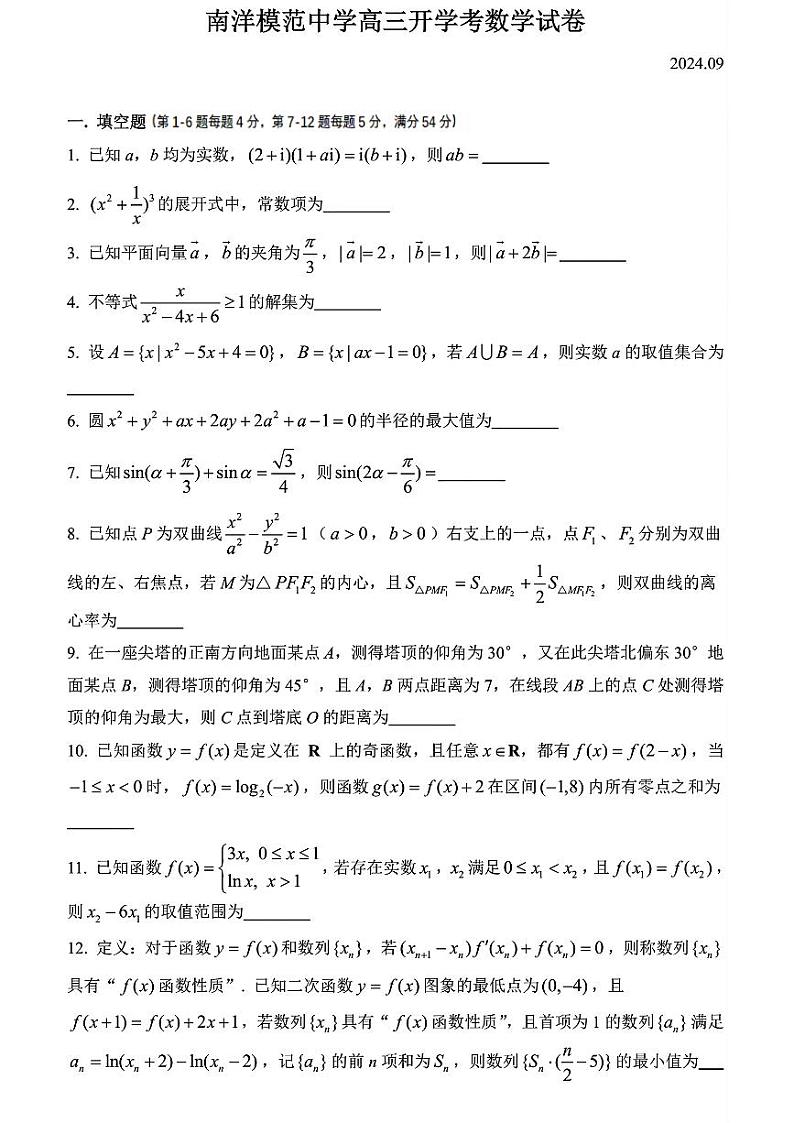 南洋模范中学高三开学考数学试卷
2024.09
一. 填空题 (第 1-6 题每题 4 分，第 7-12 题每题 5 分，满分 54 分)
1. 已知 a，b 均为实数，(2+i)(1+ai)=i(b+i)，则 ab=________
2. (x²+1/x)³的展开式中，常数项为________
3. 已知平面向量a⃗，b⃗的夹角为π/3，|a⃗|=2，|b⃗|=1，则|a⃗+2b⃗|=________
4. 不等式x/(x²-4x+6)≥1的解集为________
5. 设 A={x|x²-5x+4=0}，B={x|ax-1=0}，若 A∪B=A，则实数 a 的取值集合为
________
6. 圆x²+y²+ax+2ay+2a²+a-1=0的半径的最大值为________
7. 已知sin(α+π/3)+sinα=√3/4，则sin(2α-π/6)=________
8. 已知点 P 为双曲线x²/a²-y²/b²=1（a>0，b>0）右支上的一点，点F₁、F₂分别为双曲
线的左、右焦点，若 M 为△PF₁F₂的内心，且S△PMF₁=S△PMF₂+1/2S△MF₁F₂，则双曲线的离
心率为________
9. 在一座尖塔的正南方向地面某点 A，测得塔顶的仰角为 30°，又在此尖塔北偏东 30°地
面某点 B，测得塔顶的仰角为 45°，且 A，B 两点距离为 7，在线段 AB 上的点 C 处测得塔
顶的仰角为最大，则 C 点到塔底 O 的距离为________
10. 已知函数 y=f(x)是定义在 R 上的奇函数，且任意 x∈R，都有 f(x)=f(2-x)，当
-1≤x<0时，f(x)=log₂(-x)，则函数 g(x)=f(x)+2在区间(-1,8)内所有零点之和为
________
11. 已知函数 f(x)={3x, 0≤x≤1; ln x, x>1，若存在实数x₁，x₂满足0≤x₁<x₂，且 f(x₁)=f(x₂)，
则 x₂-6x₁的取值范围为________
12. 定义：对于函数 y=f(x)和数列{xₙ}，若(xₙ₊₁-xₙ)f′(xₙ)+f(xₙ)=0，则称数列{xₙ}
具有“f(x)函数性质”. 已知二次函数 y=f(x)图象的最低点为(0,-4)，且
f(x+1)=f(x)+2x+1，若数列{xₙ}具有“f(x)函数性质”，且首项为 1 的数列{aₙ}满足
aₙ=ln(xₙ+2)-ln(xₙ-2)，记{aₙ}的前 n 项和为 Sₙ，则数列{Sₙ·(n/2-5)}的最小值为___